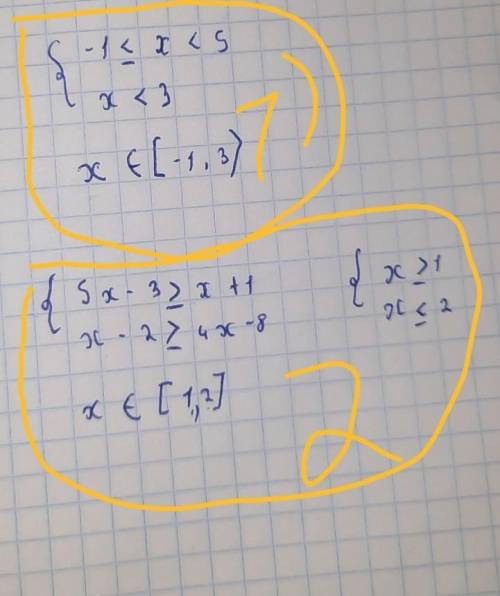 { -1 ≤ x < 5
x < 3
x ∈ [-1, 3)
1)
{ 5x - 3 ≥ x + 1
x - 2 ≥ 4x - 8
{ x ≥ 1
x ≤ 2
x ∈ [1, 2]
2